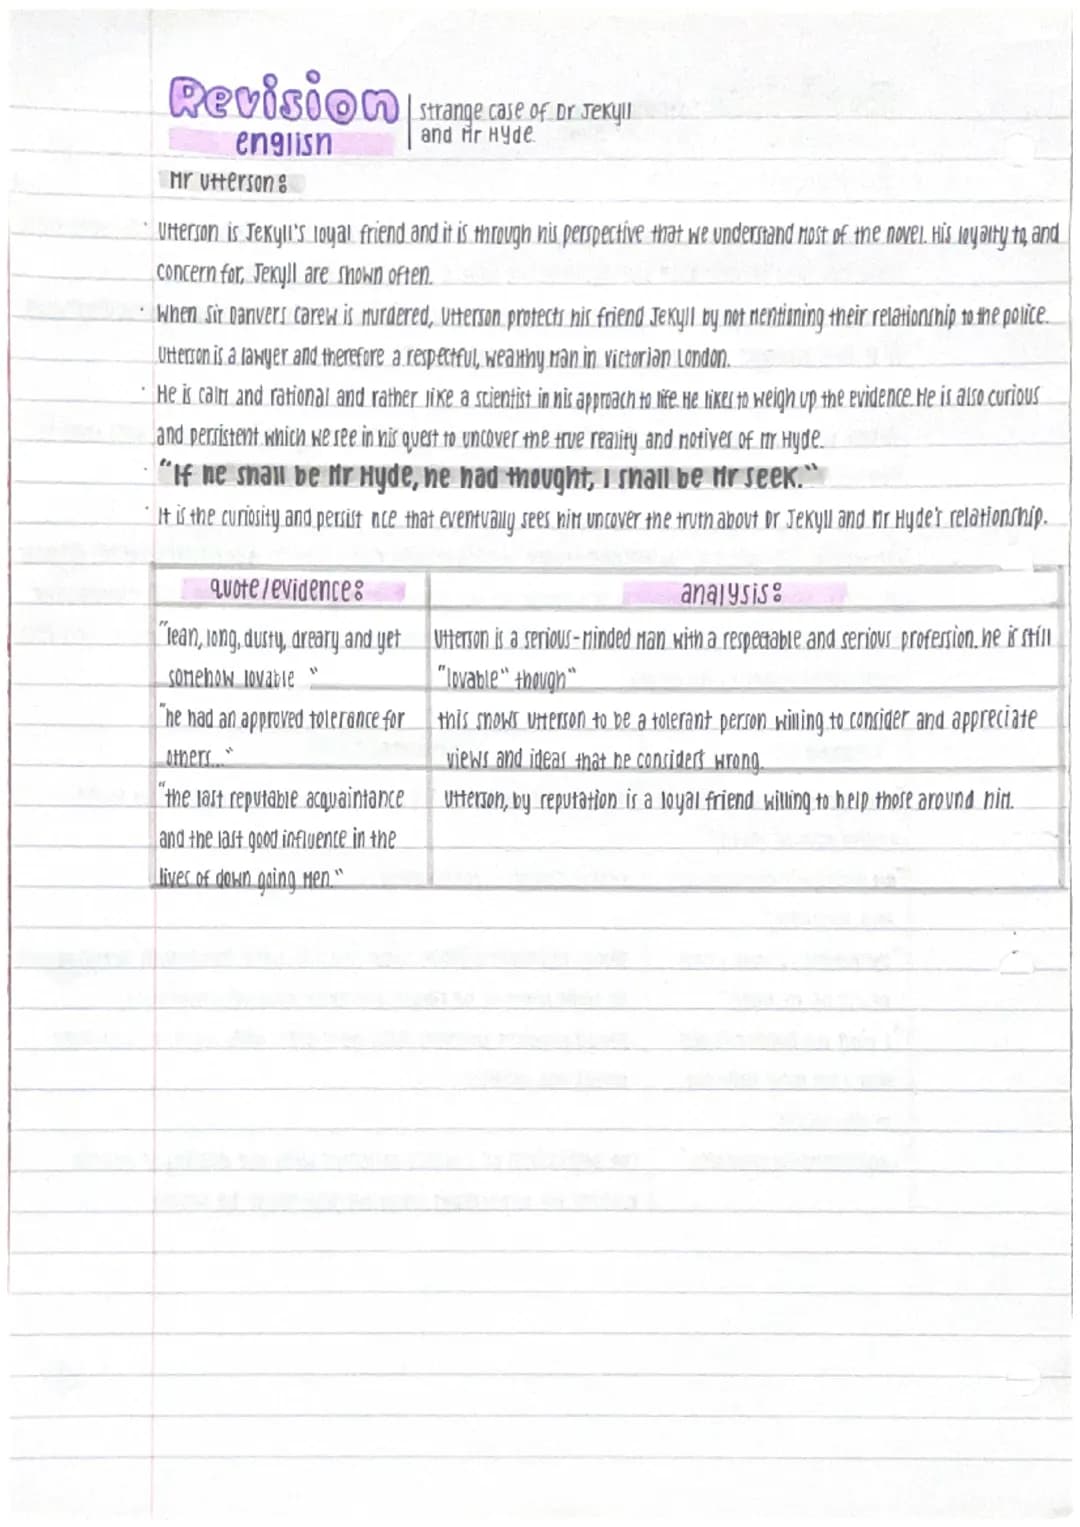 Revision
english
strange case of Dr Jekyll
and Mr Hyde.
Mr Utterson:
· Utterson is Jekyll's loyal friend and it is through his perspective that we understand most of the novel. His loyalty to, and
concern for, Jekyll are shown often.
· When Sir Danvers Carew is murdered, Utterson protects his friend Jekyll by not mentioning their relationship to the police.
Utterson is a lawyer and therefore a respectful, wealthy man in victorian London.
· He is calm and rational and rather like a scientist in his approach to life. He likes to weigh up the evidence. He is also curious
and persistent which we see in his quest to uncover the true reality and motives of mr Hyde.
· "If he shall be Mr Hyde, he had thought, I shall be Mr seek."
· It is the curiosity and persist nce that eventually sees him uncover the truth about Dr Jekyll and Mr Hyde's relationship.
quote/evidence:
analysis:
"lean, long, dusty, dreary and yet
somehow lovable "
Utterson is a serious-minded man with a respectable and serious profession. he is still
"lovable" though"
"he had an approved tolerance for
others..."
this shows utterson to be a tolerant person willing to consider and appreciate
views and ideas that he considers wrong.
"the last reputable acquaintance
and the last good influence in the
lives of down going men."
Utterson, by reputation is a loyal friend willing to help those around him.